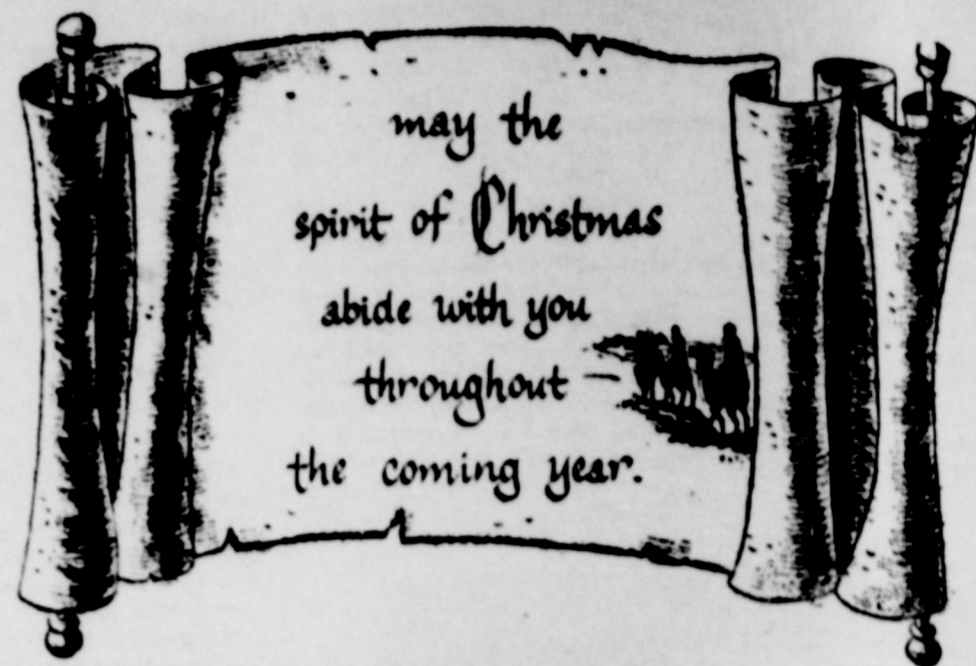 may the
spirit of Christmas
abide with you
throughout
the coming year.